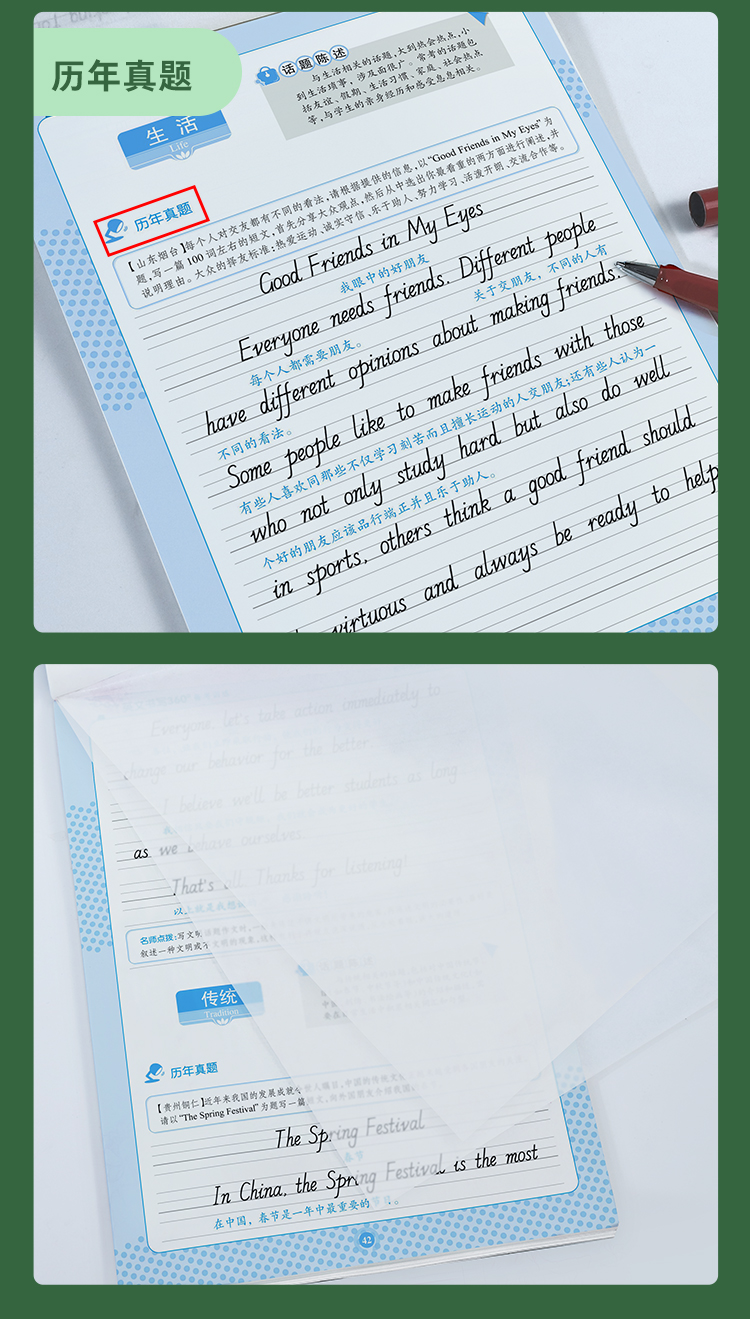 历年真题
话题陈述
与生活相关的话题,大到热会热点,小
到生活琐事,涉及面很广。常考的话题包
括友谊、假期、生活习惯、家庭、社会热点
等,与学生的亲身经历和感受息息相关。
生活
Life
历年真题
【山东烟台】每个人对交友都有不同的看法,请根据提供的信息,以“Good Friends in My Eyes”为
题,写一篇100词左右的短文,首先分享大众观点,然后从中选出你最看重的两方面进行阐述,并
说明理由。大众的择友标准:热爱运动、诚实守信、乐于助人、努力学习、活泼开朗、交流合作等。
Good Friends in My Eyes
我眼中的好朋友
Everyone needs friends. Different people
每个人都需要朋友。 关于交朋友,不同的人有
have different opinions about making friends.
不同的看法。
Some people like to make friends with those
有些人喜欢同那些不仅学习刻苦而且擅长运动的人交朋友;还有些人认为一
who not only study hard but also do well
个好的朋友应该品行端正并且乐于助人。
in sports, others think a good friend should
virtuous and always be ready to help
Everyone, let's take action immediately to
change our behavior for the better.
I believe we'll be better students as long
as we behave ourselves.
That's all. Thanks for listening!
以上就是
名师点拨:写文明
叙述一种文明或不文明的现象,
传统
Tradition
历年真题
【贵州铜仁】近年来我国的发展成就
请以“The Spring Festival”为题写一篇
The Spring Festival
春节
In China, the Spring Festival is the most
在中国,春节是一年中最重要的节日。
42